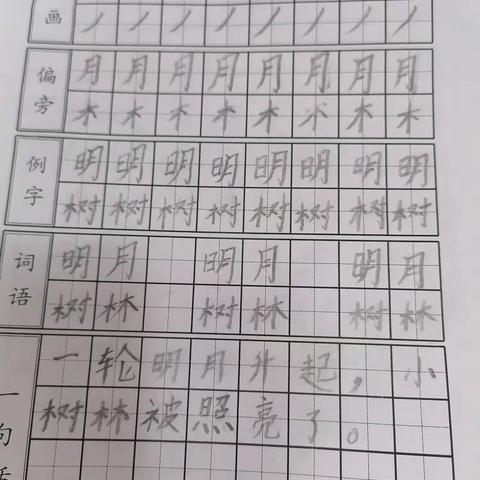 画 丿 丿 丿 丿 丿 丿 丿 丿
偏旁 月 月 月 月 月 月 月 月
木 木 木 木 木 木 木 木
例字 明 明 明 明 明 明 明 明
树 树 树 树 树 树 树 树
词语 明月 明月 明月
树林 树林 树林
一句话 一轮明月升起，小
树林被照亮了。